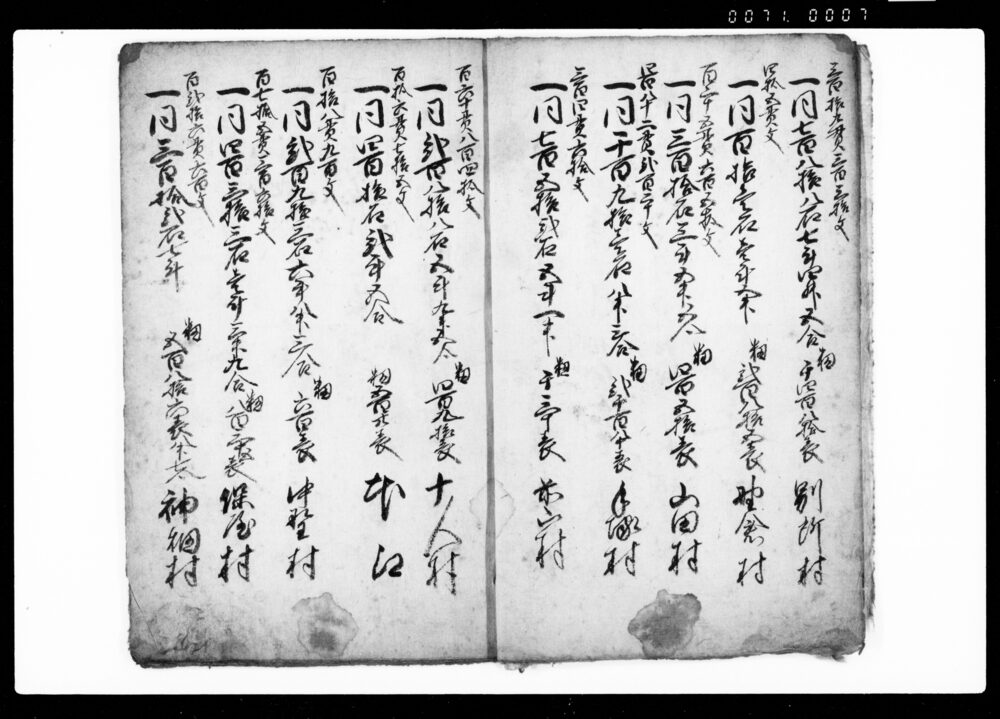 0071. 0007
三百拾九貫三百三拾文
一同七百八拾八石七斗四升五合 籾 千四百拾表 別所村
四拾五貫文
一同百拾壱石壱斗五升 籾 弐百八拾五表 野倉村
百二十五貫六百五拾文
一同三百拾石三斗五升五合 籾 四百五拾表 山田村
四百八十二貫弐百二十文
一同千百九拾壱石八升三合 籾 弐千百八十表 手塚村
三百四貫六拾文
一同七百五拾弐石五斗一升 籾 千二十表 前山村
百六十貫八百四拾文
一同弐百八拾八石五斗九升五合 籾 四百九拾表 十人村
百拾六貫七拾五文
一同四百拾石弐斗五合 籾 表 本江
百拾八貫九百文
一同弐百九拾三石六斗八升三合 籾 六百表 中野村
百七拾五貫二百六拾文
一同四百三拾三石壱斗二升九合 籾 表 保屋村
百弐拾六貫六百文
一同三百拾弐石七斗 籾 五百八拾六表 神畑村